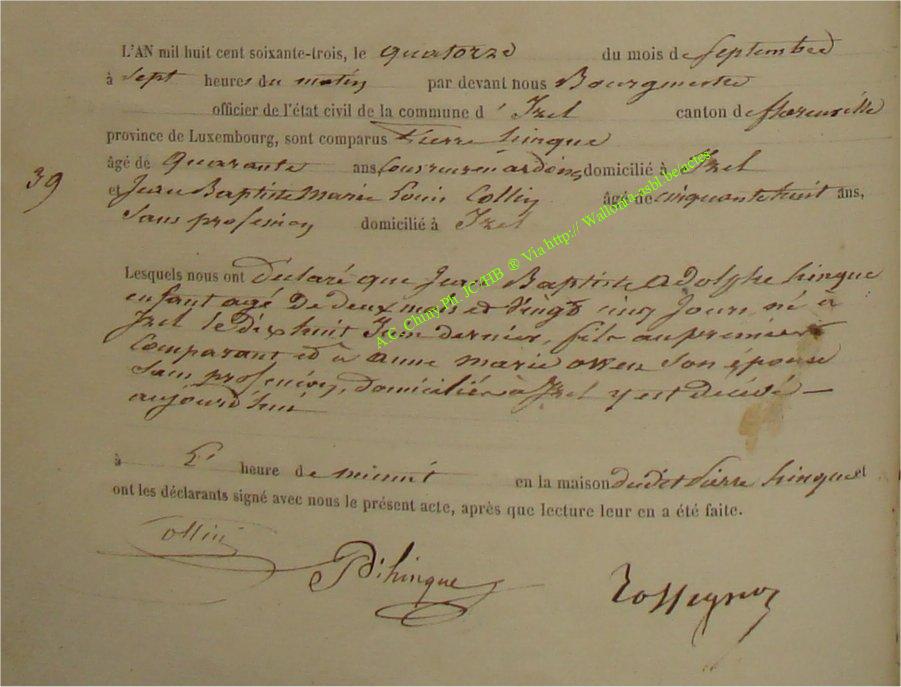 L'AN mil huit cent soixante-trois, le quatorze du mois de Septembre
à Sept heures du matin par devant nous Bourgmestre
officier de l'état civil de la commune d' Izel canton de florenville
province de Luxembourg, sont comparus Pierre hinque
âgé de quarante ans, domicilié à Izel
39
et Jean Baptiste Marie Louis Collin âgé de cinquante huit ans,
Sans profession domicilié à Izel
Lesquels nous ont Déclaré que Jean Baptiste Adolphe hinque
enfant agé De deux mois et Vingt cinq Jours, né a
Izel le Dix huit Juin dernier, fils au premier
Comparant et à anne marie owen Son épouse
Sans profession, domiciliée à Izel y est décédé
aujourd'hui
à L' heure de minuit en la maison dudit Pierre hinque et
ont les déclarants signé avec nous le présent acte, après que lecture leur en a été faite.
Collin
P. hinque
Rossignon
A.C. Chiny Ph. JC/HB ® Via http:// Wallonia-asbl.be/actes